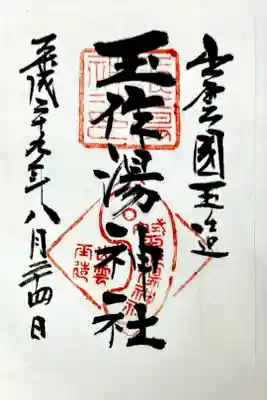 出雲國玉造
玉作湯神社
平成二十九年八月二十四日
出雲
玉造